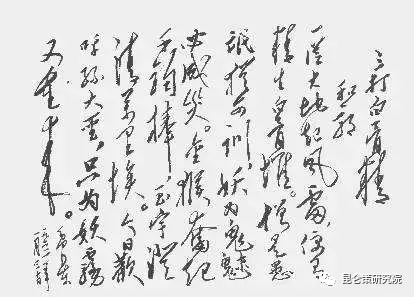 三打白骨精
和郭
一从大地起风雷,便有
精生白骨堆。僧是愚
氓犹可训,妖为鬼魅
必成災。金猴奋起
千钧棒,玉宇澄
清万里埃。今日歡
呼孙大圣,只为妖雾
又重来。
昆仑策研究院